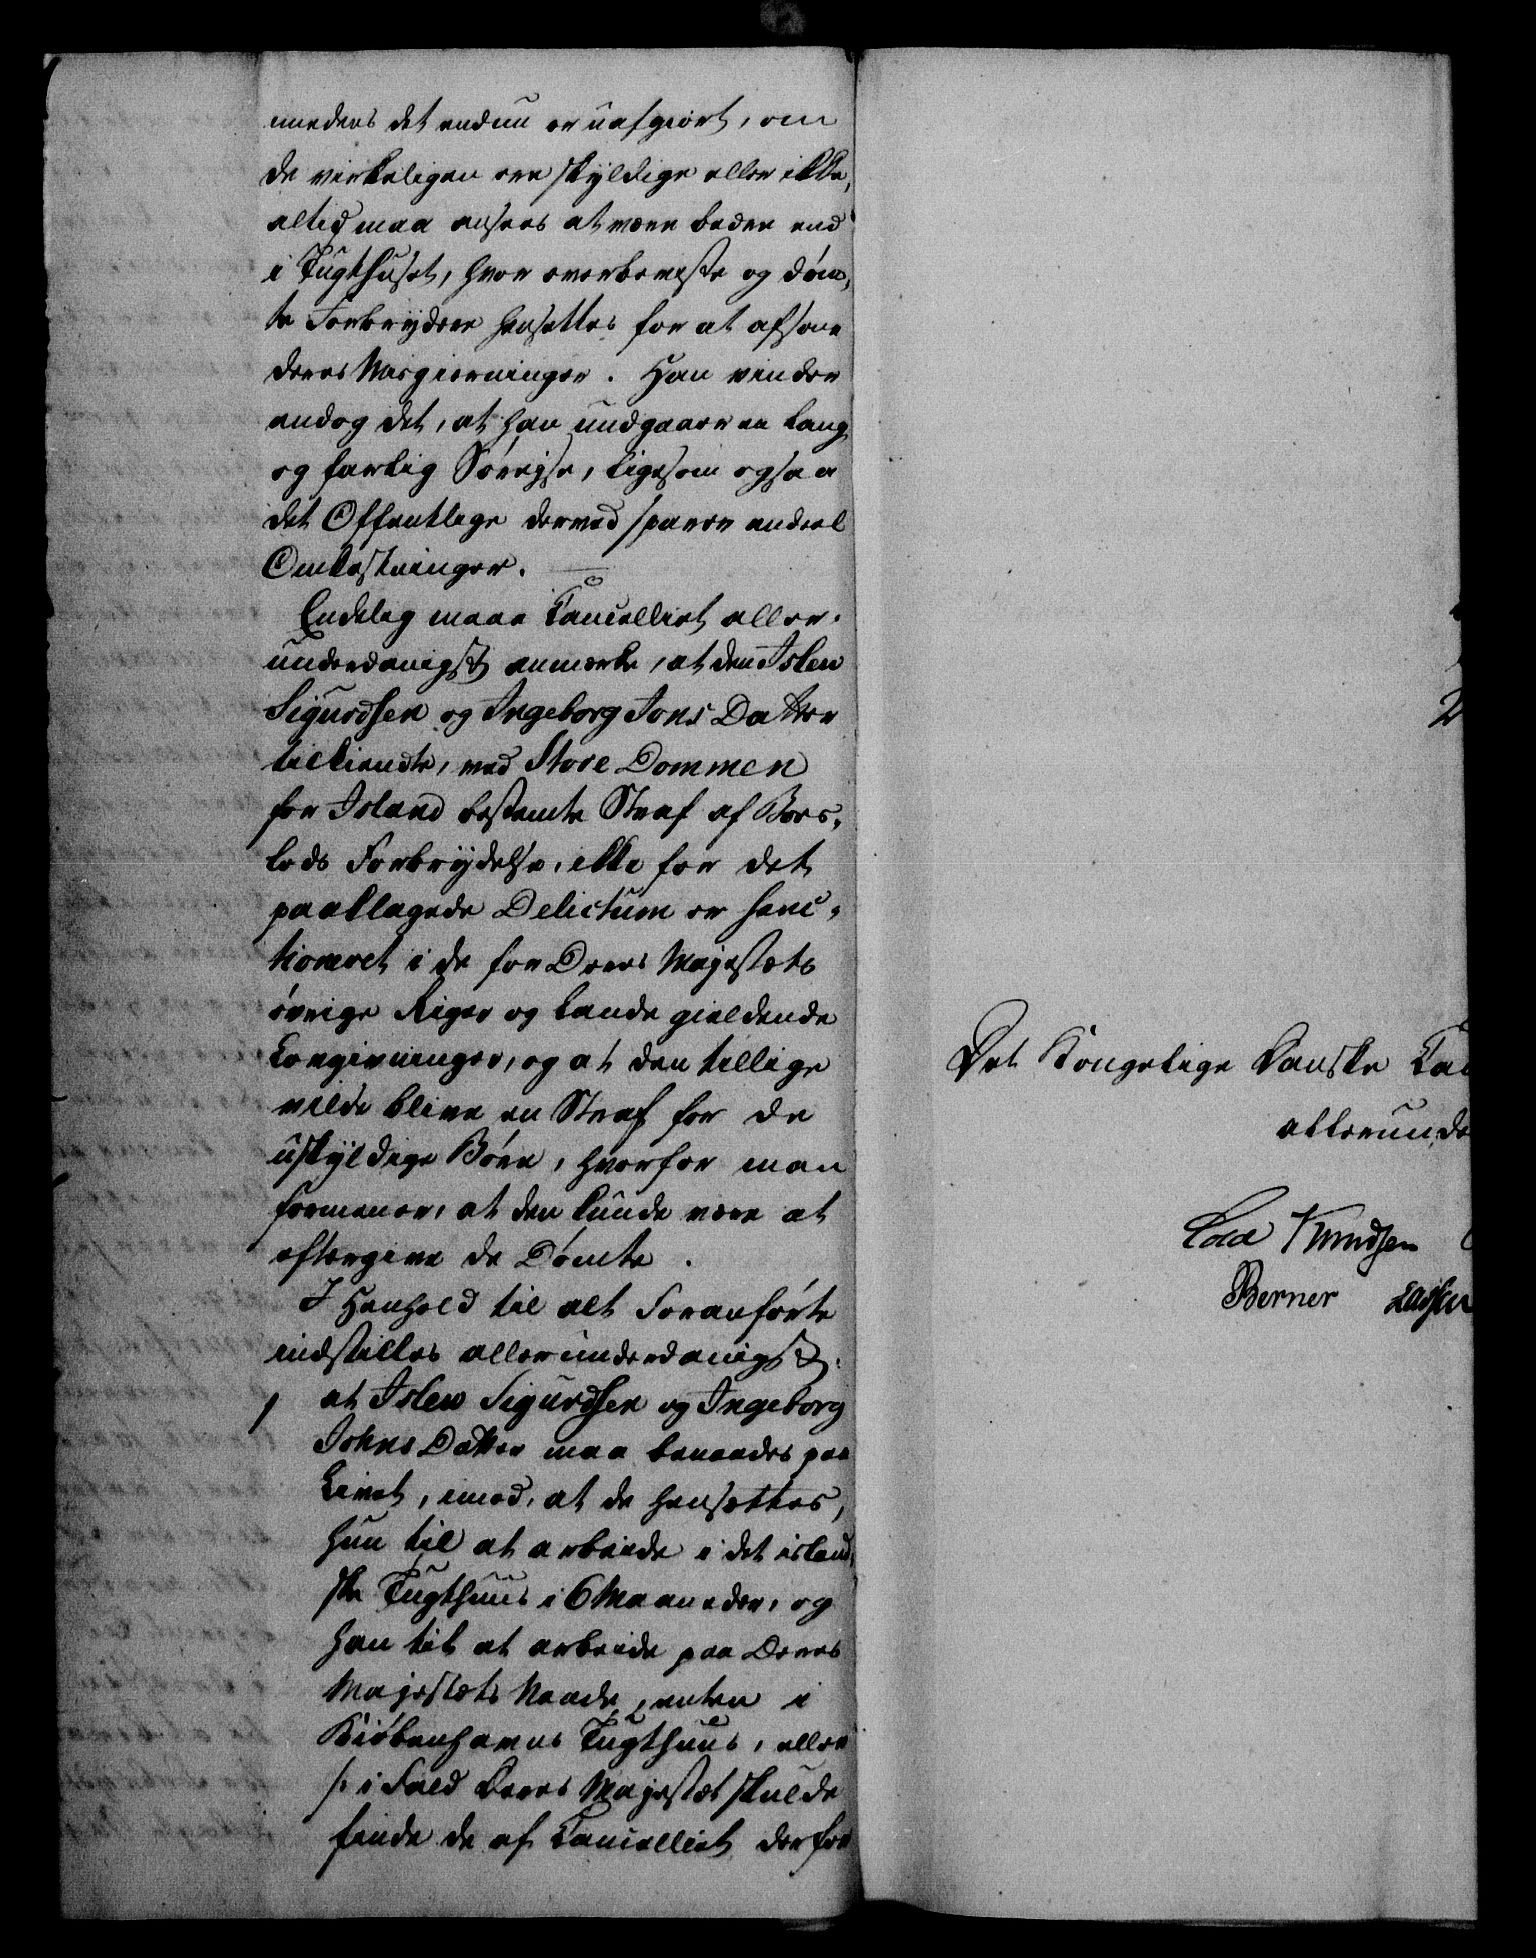 medens det endnu er uafgiort, om
de virkeligen ere skyldige eller ikke,
altid maa ansees at være bedre end
i Tugthuset, hvor overbeviste og døm¬
te Forbrydere hensættes for at afsone
deres Misgierninger. Han vinder
endog det, at han undgaaer en lang
og farlig Søreise, ligesom ogsaa
det Offentlige derved sparer endeel
Omkostninger.
Endelig maae Cancelliet aller¬
underdanigst anmærke, at den Islev
Sigurdsen og Ingeborg Jons Datter
tilkiendte, ved Store Dommen
for Island bestemte Straf af Boes¬
lods Forbrydelse, ikke for det
paaklagede Delictum er sanc¬
tioneret i de for Deres Majestæts
øvrige Riger og Lande gieldende
Lovgivninger, og at den tillige
vilde blive en Straf for de
uskyldige Børn, hvorfor man
formener, at den kunde være at
eftergive de Dømte.
I Henhold til alt Foranførte
indstilles allerunderdanigst:
at Islev Sigurdsen og Ingeborg
Johns Datter maa benaades paa
Livet, imod, at de hensættes,
hun til at arbeide i det island¬
ske Tugthuus i 6 Maaneder, og
han til at arbeide paa Deres
Majestæts Naade, enten i
Kiøbenhavns Tugthuus, eller
/: i Fald Deres Majestæt skulde
finde de af Cancelliet derfor
Det Kongelige Danske Can
allerunde
Cold Knudsen
Berner Lassen